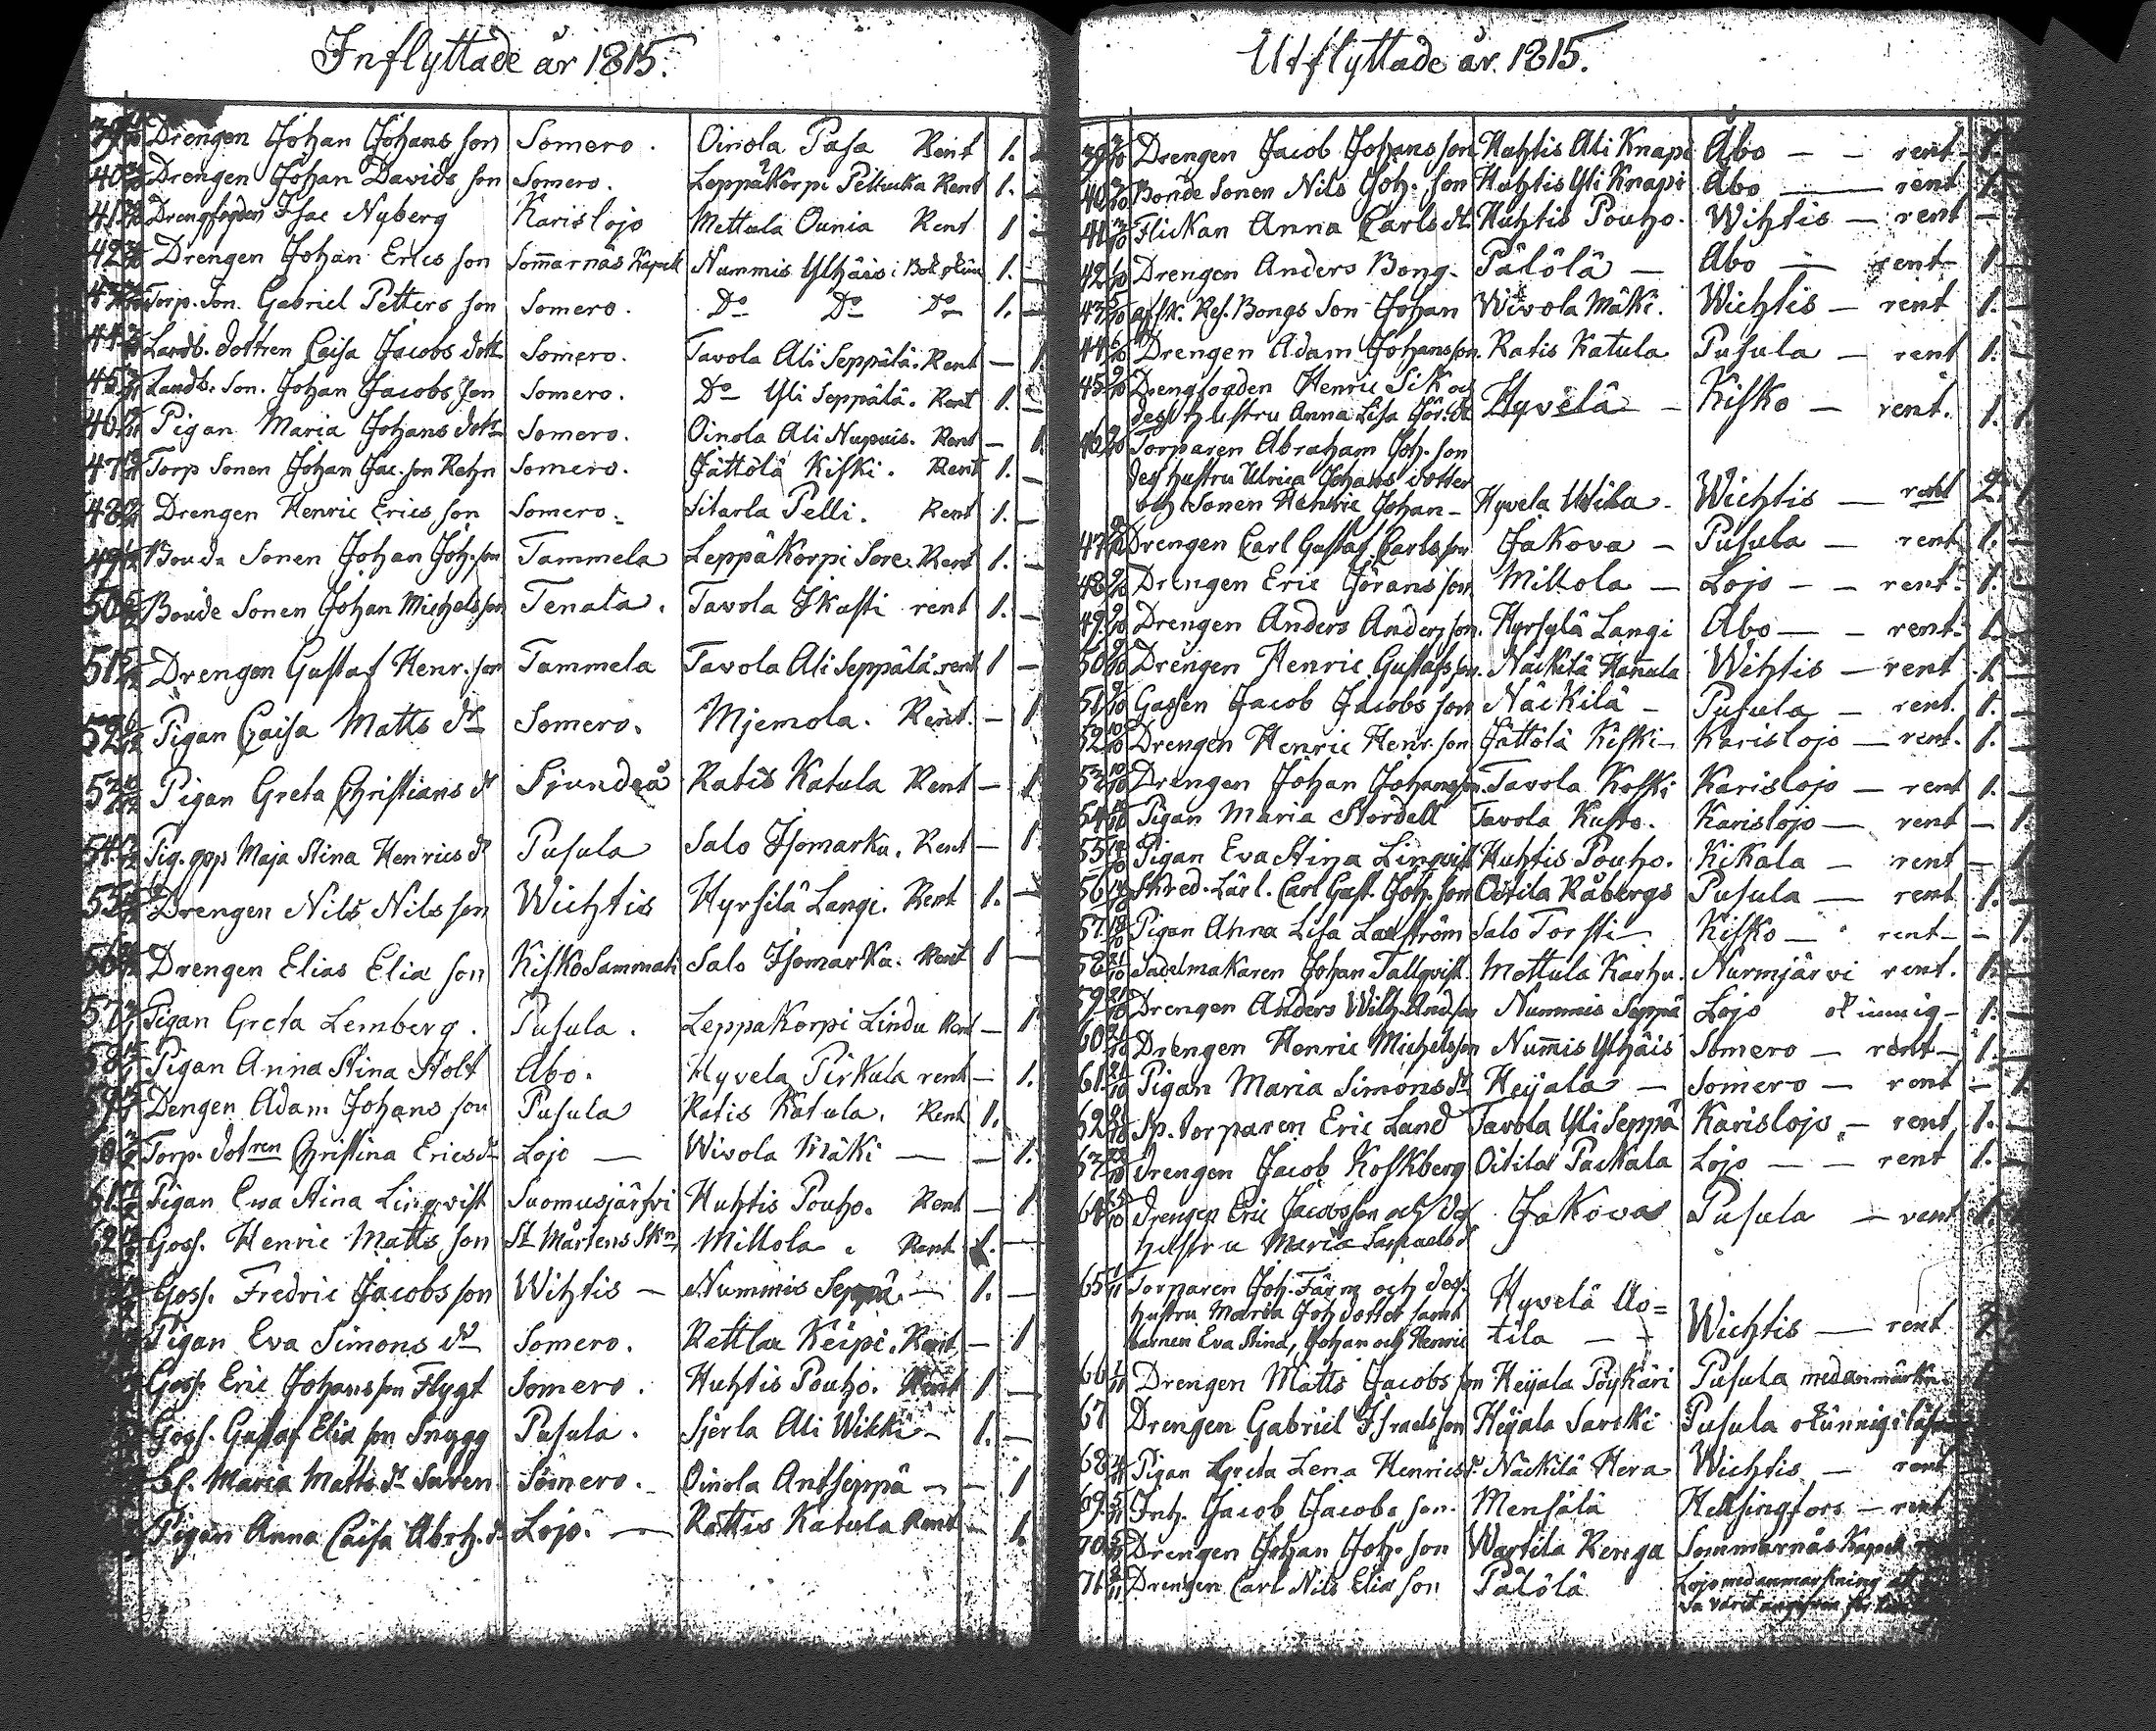 Inflyttade år 1815.
39 Drengen Johan Johans son Somero. Oinola Pasa Rent 1. –
40 Drengen Johan Davids son Somero. Leppäkorpi Rent 1. –
41 Drengfogden Isac Nyberg Karislojo Mettula Ounia Rent 1 –
42 Drengen Johan Erics son Som̄arnäs Kapell Nummis Ylhäis i Bok 1. –
43 Torp. Son. Gabriel Petters son Somero. Do Do Do 1. –
44 Landb. dottren Caisa Jacobs dott Somero. Tavola Ali Seppälä. Rent – 1
45 Landb. Son. Johan Jacobs son Somero. Do Yli Seppälä. Rent 1. –
46 Pigan Maria Johans dottr Somero. Oinola Ali Nupuis. Rent – 1
47 Torp Sonen Johan Jac. son Rehn Somero. Jättölä Kiski. Rent 1. –
48 Drengen Henric Erics son Somero. Sitarla Pelli. Rent 1. –
49 Bonde Sonen Johan Joh. son Tammela Leppäkorpi Sore. Rent 1. –
50 Bonde Sonen Johan Michels son Tenala. Tavola Skasti rent 1. –
51 Drengen Gustaf Henr. son Tammela Tavola Ali Seppälä. rent 1 –
52 Pigan Caisa Matts dr Somero. Mjemola. Rent. – 1
53 Pigan Greta Christians dr Sjundeå Ratis Katula Rent – 1
54 Pig. gop Maja Stina Henrics dr Pusula Salo Isomarku. Rent – 1
55 Drengen Nils Nils son Wichtis Hyrsilä Langi. Rent 1. –
56 Drengen Elias Elia son Kisko Sammati Salo Isomarku. Rent 1 –
57 Pigan Greta Lemberg. Pusula. Leppäkorpi Lindu Rent – 1
58 Pigan Anna Stina Stolt Åbo. Hyvela Pirkula rent – 1.
59 Dengen Adam Johans son Pusula Ratis Katula. Rent 1.
60 Torp. dotren Christina Ericsdr Lojo – Wivola Mäki – – 1.
61 Pigan Ewa Stina Linqvist Suomusjärfvi Huhtis Pouho. Rent – 1
62 Goss. Henric Matts son St Mårtens Skn Millola. Rent 1. –
Goss. Fredric Jacobs son Wihtis – Nummis Seppä. – 1. –
Pigan Eva Simons dr Somero. Rettlax Keipi. Rent – 1
Goss. Eric Johansson Flygt Somero. Huhtis Pouho. Rent 1 –
Goss. Gustaf Elia son Snygg Pusula. Sjerla Ali Wikki – 1. –
Maria Matts dr Somero. – Oinola Antseppä – – 1
Pigan Anna Caisa Abrh. dr Lojo. – Rattis Katula Rent – 1.
Utflyttade år. 1815.
39 Drengen Jacob Johans son Huhtis Ali Knapi Åbo – – rent – 1.
40 Bonde Sonen Nils Joh. son Huhtis Yli Knapi Åbo – rent 1.
41 Flickan Anna Carls dr. Huhtis Pouho. Wihtis – rent –
42 Drengen Anders Bong. Pälölä – Åbo – rent – 1
43 afsk. Ref. Bongs Son Johan Wivola Mäki. Wichtis – rent 1. –
44 Drengen Adam Johansson. Ratis Katula Pusula – rent 1. –
45 Drengfogden Henric Sik och
dess hustru Anna Lisa Jör. dr Hyvelä – Kisko – rent. 1. 1
46 Torparen Abraham Joh. son
des hustru Ulrica Johans dotter
och Sonen Henric Johan – Hyvela Utila. Wichtis – rent 2. 1
47 Drengen Carl Gustaf Carlsson Jakova – Pusula – rent 1. –
48 Drengen Eric Jörans son Millola – Lojo – – rent. 1. –
49 Drengen Anders Anders son. Hyrsylä Langi Åbo – – rent. 1. –
50 Drengen Henric Gustafsson. Näckilä Hannula Wihtis – rent 1
51 Gossen Jacob Jacobs son Näckilä – Pusula – rent. 1. –
52 Drengen Henric Henr. son Jättölä Kiski – Karislojo – rent. 1. –
53 Drengen Johan Johansson. Tavola Koski Karislojo – rent 1. –
54 Pigan Maria Nordell Tavola Kusto. Karislojo – rent – 1.
55 Pigan Eva Stina Linqvist Huhtis Pouho. Kikala – rent – 1
56 Skred. Lärl. Carl Gust. Joh. son Oötila Råbergs Pusula – rent 1. –
57 Pigan Anna Lisa Laström Salo Torsti – Kisko – rent – – 1.
58 Sadelmakaren Johan Tallqvist. Mettula Karhu. Nurmjärvi rent. 1. –
59 Drengen Anders Wilh. Andson Nummis Seppä Lojo okunnig – 1. –
60 Drengen Henric Michelsson Num̄is Ylhäis Somero – rent – 1. –
61 Pigan Maria Simons dr Heijala – Somero – rent – 1
62 Sp. torparen Eric Lund Tavola Yli Seppä Karislojo – rent 1. –
63 Drengen Jacob Koskberg Oitila Packala Lojo – – rent 1. –
64 Drengen Eric Jacobsson och des Jakova Pusula – rent 1.
hustru Maria Samuels dr
65 Torparen Joh. Färm och dess.
hustru Maria Joh dotter samt Hyvelä Uo=
barnen Eva Stina, Johan och Henric tila – – Wichtis – rent
66 Drengen Matts Jacobs son Heijala Pöykäri Pusula med anmärkn.
67 Drengen Gabriel Israelsson Heijala Sarcki Pusula okunnig i läs
68 Pigan Greta Lena Henricsdr. Näckilä Hera Wichtis – rent
69. Inh. Jacob Jacobs son. Mensälä Helsingfors – rent
70 Drengen Johan Joh. son Wartila Renga Sommarnäs Kapell
71 Drengen Carl Nils Elia son Pälölä Lojo med anmärkning at